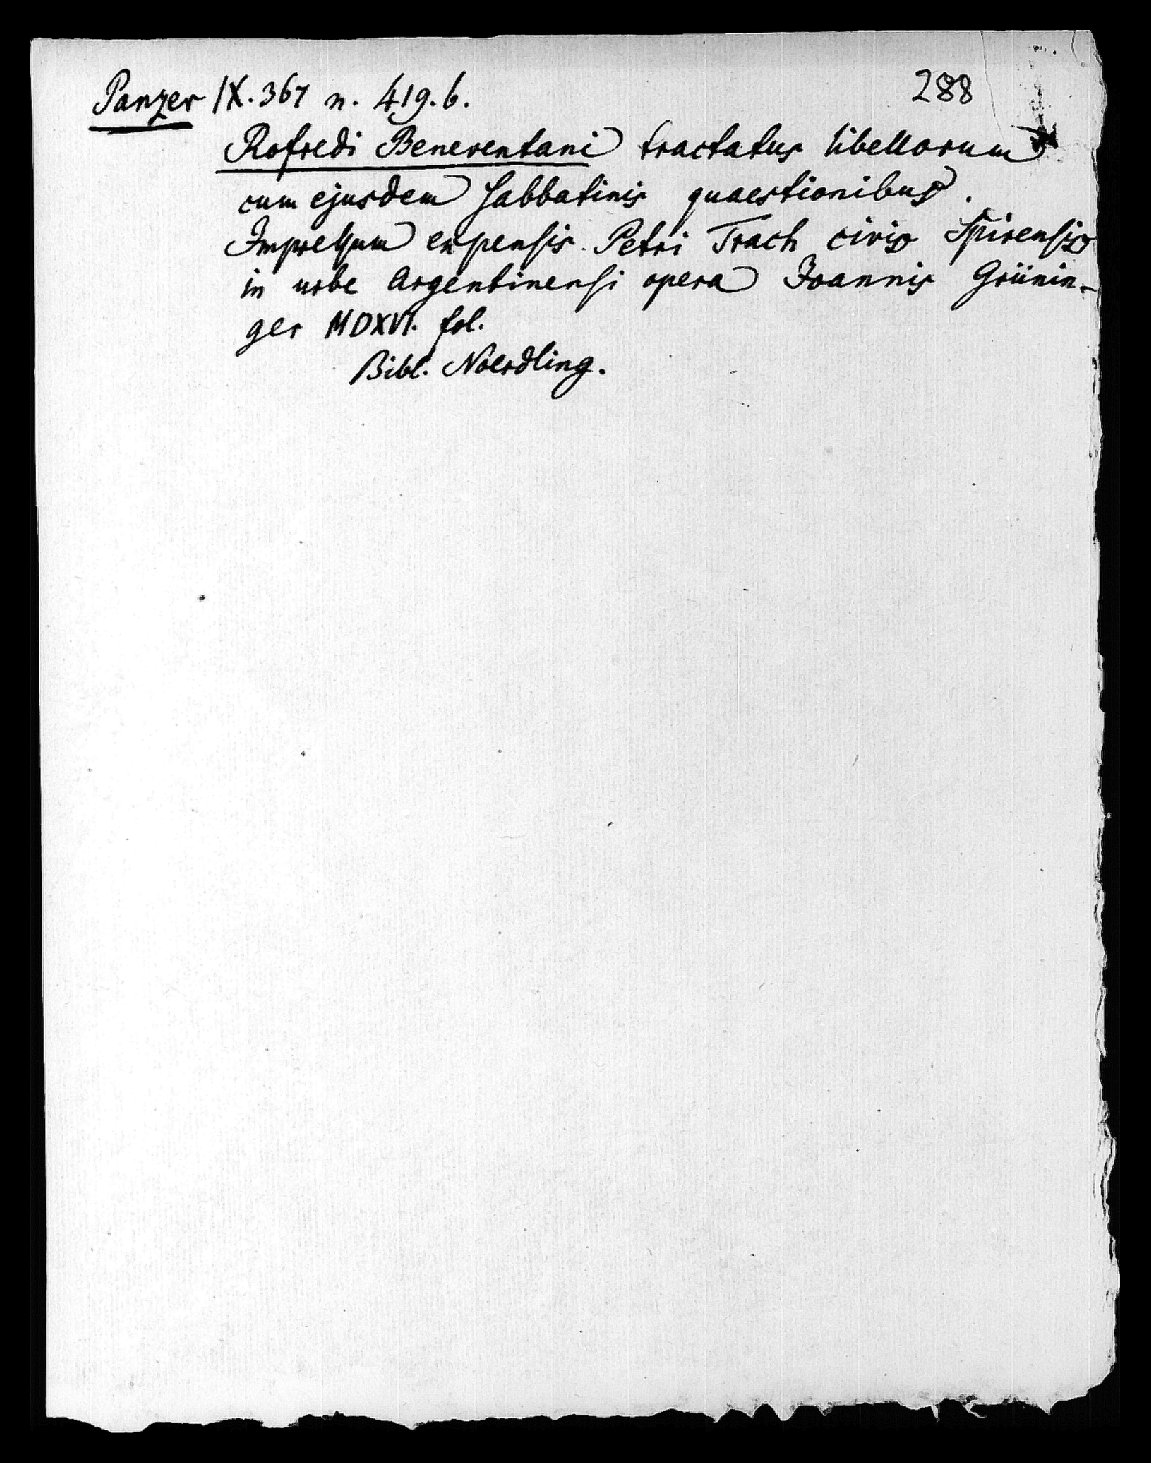 Panzer IX. 367 n. 419. b.
288
Rofredi Beneventani tractatus libellorum
cum ejusdem Sabbatinis quaestionibus.
Impressum expensis Petri Trach civis Spirensis
in urbe Argentinensi opera Joannis Grünin-
ger MDXVI. fol.
Bibl. Noerdling.